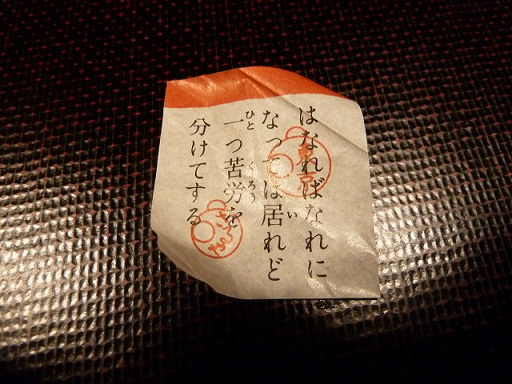 はなればなれに
なっては居れど
一つ苦労を
分けてする